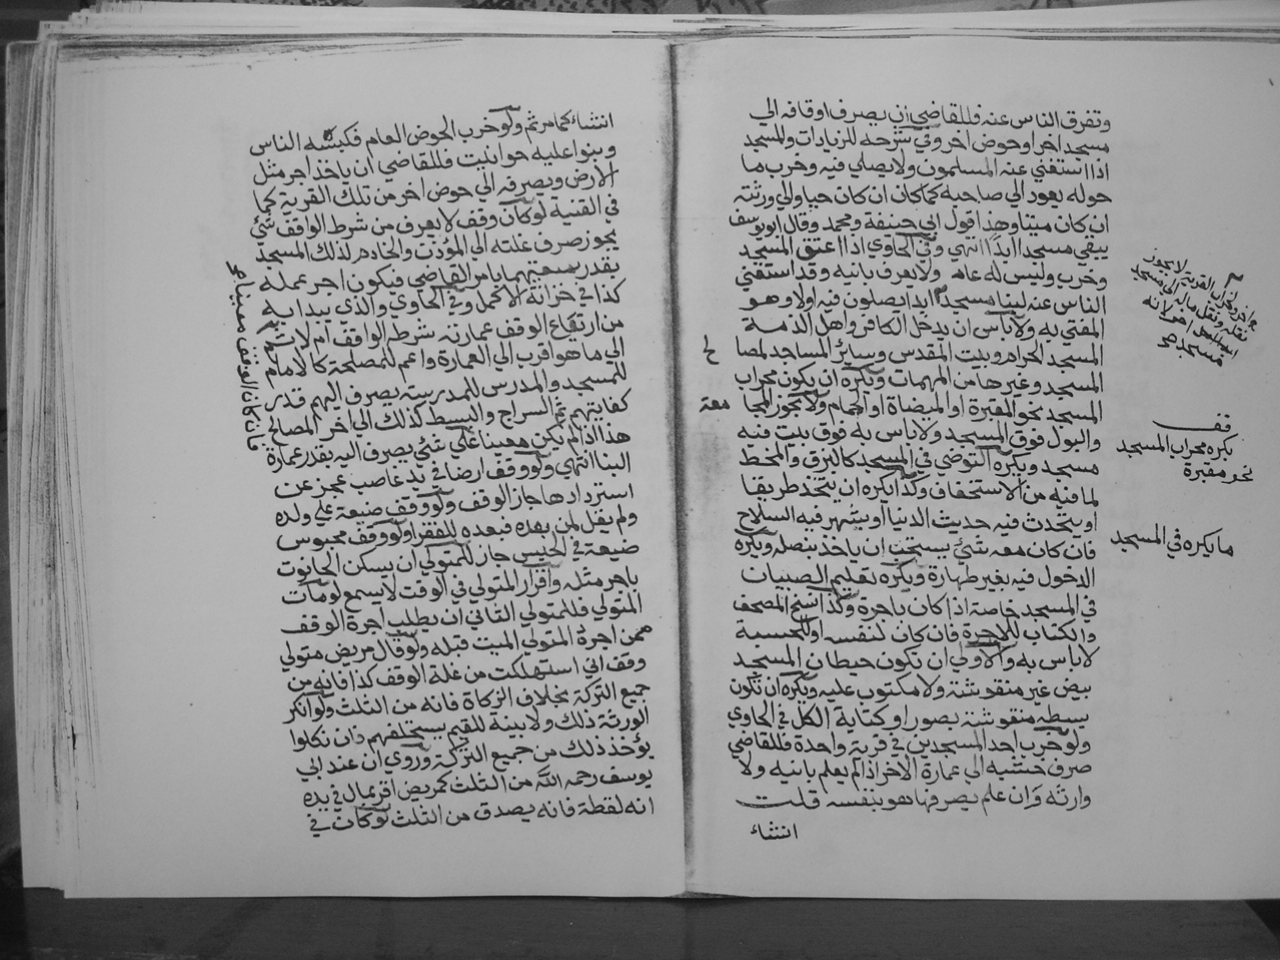 وتفرق الناس عنه فللقاضي أن يصرف اوقافه الي
مسجد اخر او حوض اخر وفي شرحه للزيادات والمسجد
اذا استغني عنه المسلمون ولا يصلي فيه وخرب ما
حوله يعود الي صاحبه كما كان ان كان حيا والي ورثته
ان كان ميتا وهذا قول ابي حنيفة ومحمد وقال ابو يوسف
يبقي مسجد ابدا انتهي وفي الحاوي اذا اعتق المسجد
وخرب وليس له عامر ولا يعرف بانيه وقد استغني
الناس عنه لبنا مسجد ابدا يصلون فيه اولا وهو
المفتي به ولا باس ان يدخل الكافر واهل الذمة
المسجد الحرام وبيت المقدس وسائر المساجد لمصا لح
المسجد وغيرها من المهمات ويكره ان يكون محراب
المسجد نحو المقبرة او الميضاة او الحمام ولا يجوز المجا معة
والبول فوق المسجد ولا باس به فوق بيت فيه
مسجد ويكره التوضي في المسجد كالبزق والمخط
لما فيه من الاستخفاف وكذا يكره ان يتخذ طريقا
أو يتحدث فيه حديث الدنيا او يشهر فيه السلاح
فان كان معه شيئ يستحب ان ياخذ بنصله ويكره
الدخول فيه بغير طهارة ويكره تعليم الصبيان
في المسجد خاصة اذا كان باجرة وكذا نسخ المصحف
والكتاب للاجرة فان كان لنفسه او للحسبة
لا باس به والاولي ان تكون حيطان المسجد
بيض غير منقوشة ولا مكتوب عليه ويكره ان تكون
بسطه منقوشة بصور او كتابة الكل في الحاوي
ولو خرب احد المسجدين في قرية واحدة فللقاضي
صرف خشبه الي عمارة الاخر اذا لم يعلم بانيه ولا
وارثه وان علم يصرفها هو بنفسه قلت
انشاء
قف
يكره محراب المسجد
نحو مقبرة
ما يكره في المسجد
انشاء كما مر ثم ولو خرب الحوض العام فكبسه الناس
وبنوا عليه حوانيت فللقاضي ان ياخذ اجر مثل
الارض ويصرفه الي حوض اخر من تلك القرية كما
في القنية لو كان وقف لا يعرف من شرط الواقف شيئ
يجوز صرف غلته الي المؤذن والخادم لذلك المسجد
بقدر سعيهما بامر القاضي فيكون اجر عمله
كذا في خزانة الاكمل وفي الحاوي والذي يبدا به
من ارتفاع الوقف عمارته شرط الواقف ام لا ثم
الي ما هو اقرب الي العمارة واعم للمصلحة كالامام
للمسجد والمدرس للمدرسة يصرف اليهم قدر
كفايتهم ثم السراج والبسط كذلك الي اخر المصالح
هذا اذا لم يكن معينا علي شيئ يصرف اليه بقدر عمارة
البنا انتهي ولو وقف ارضا في يد غاصب عجز عن
استردادها جاز الوقف ولو وقف ضيعة علي ولده
ولم يقل لمن بعده فبعده للفقرا ولو وقف محبوس
ضيعة في الحبس جاز للمتولي ان يسكن الحانوت
باجر مثله واقرار المتولي في الوقت لا يسمع لو مات
المتولي فللمتولي الثاني ان يطلب اجرة الوقف
ممن اجره المتولي الميت قبله ولو قال مريض متولي
وقف اني استهلكت من غلة الوقف كذا فانه من
جميع التركة بخلاف الزكاة فانه من الثلث ولو انكر
الورثة ذلك ولا بينة للقيم يستحلفهم وان نكلوا
يؤخذ ذلك من جميع التركة وروي ان عند ابي
يوسف رحمه الله من الثلث كمريض اقر بمال في يده
انه لقطة فانه يصدق من الثلث لو كان في
فان كان الوقف معينا